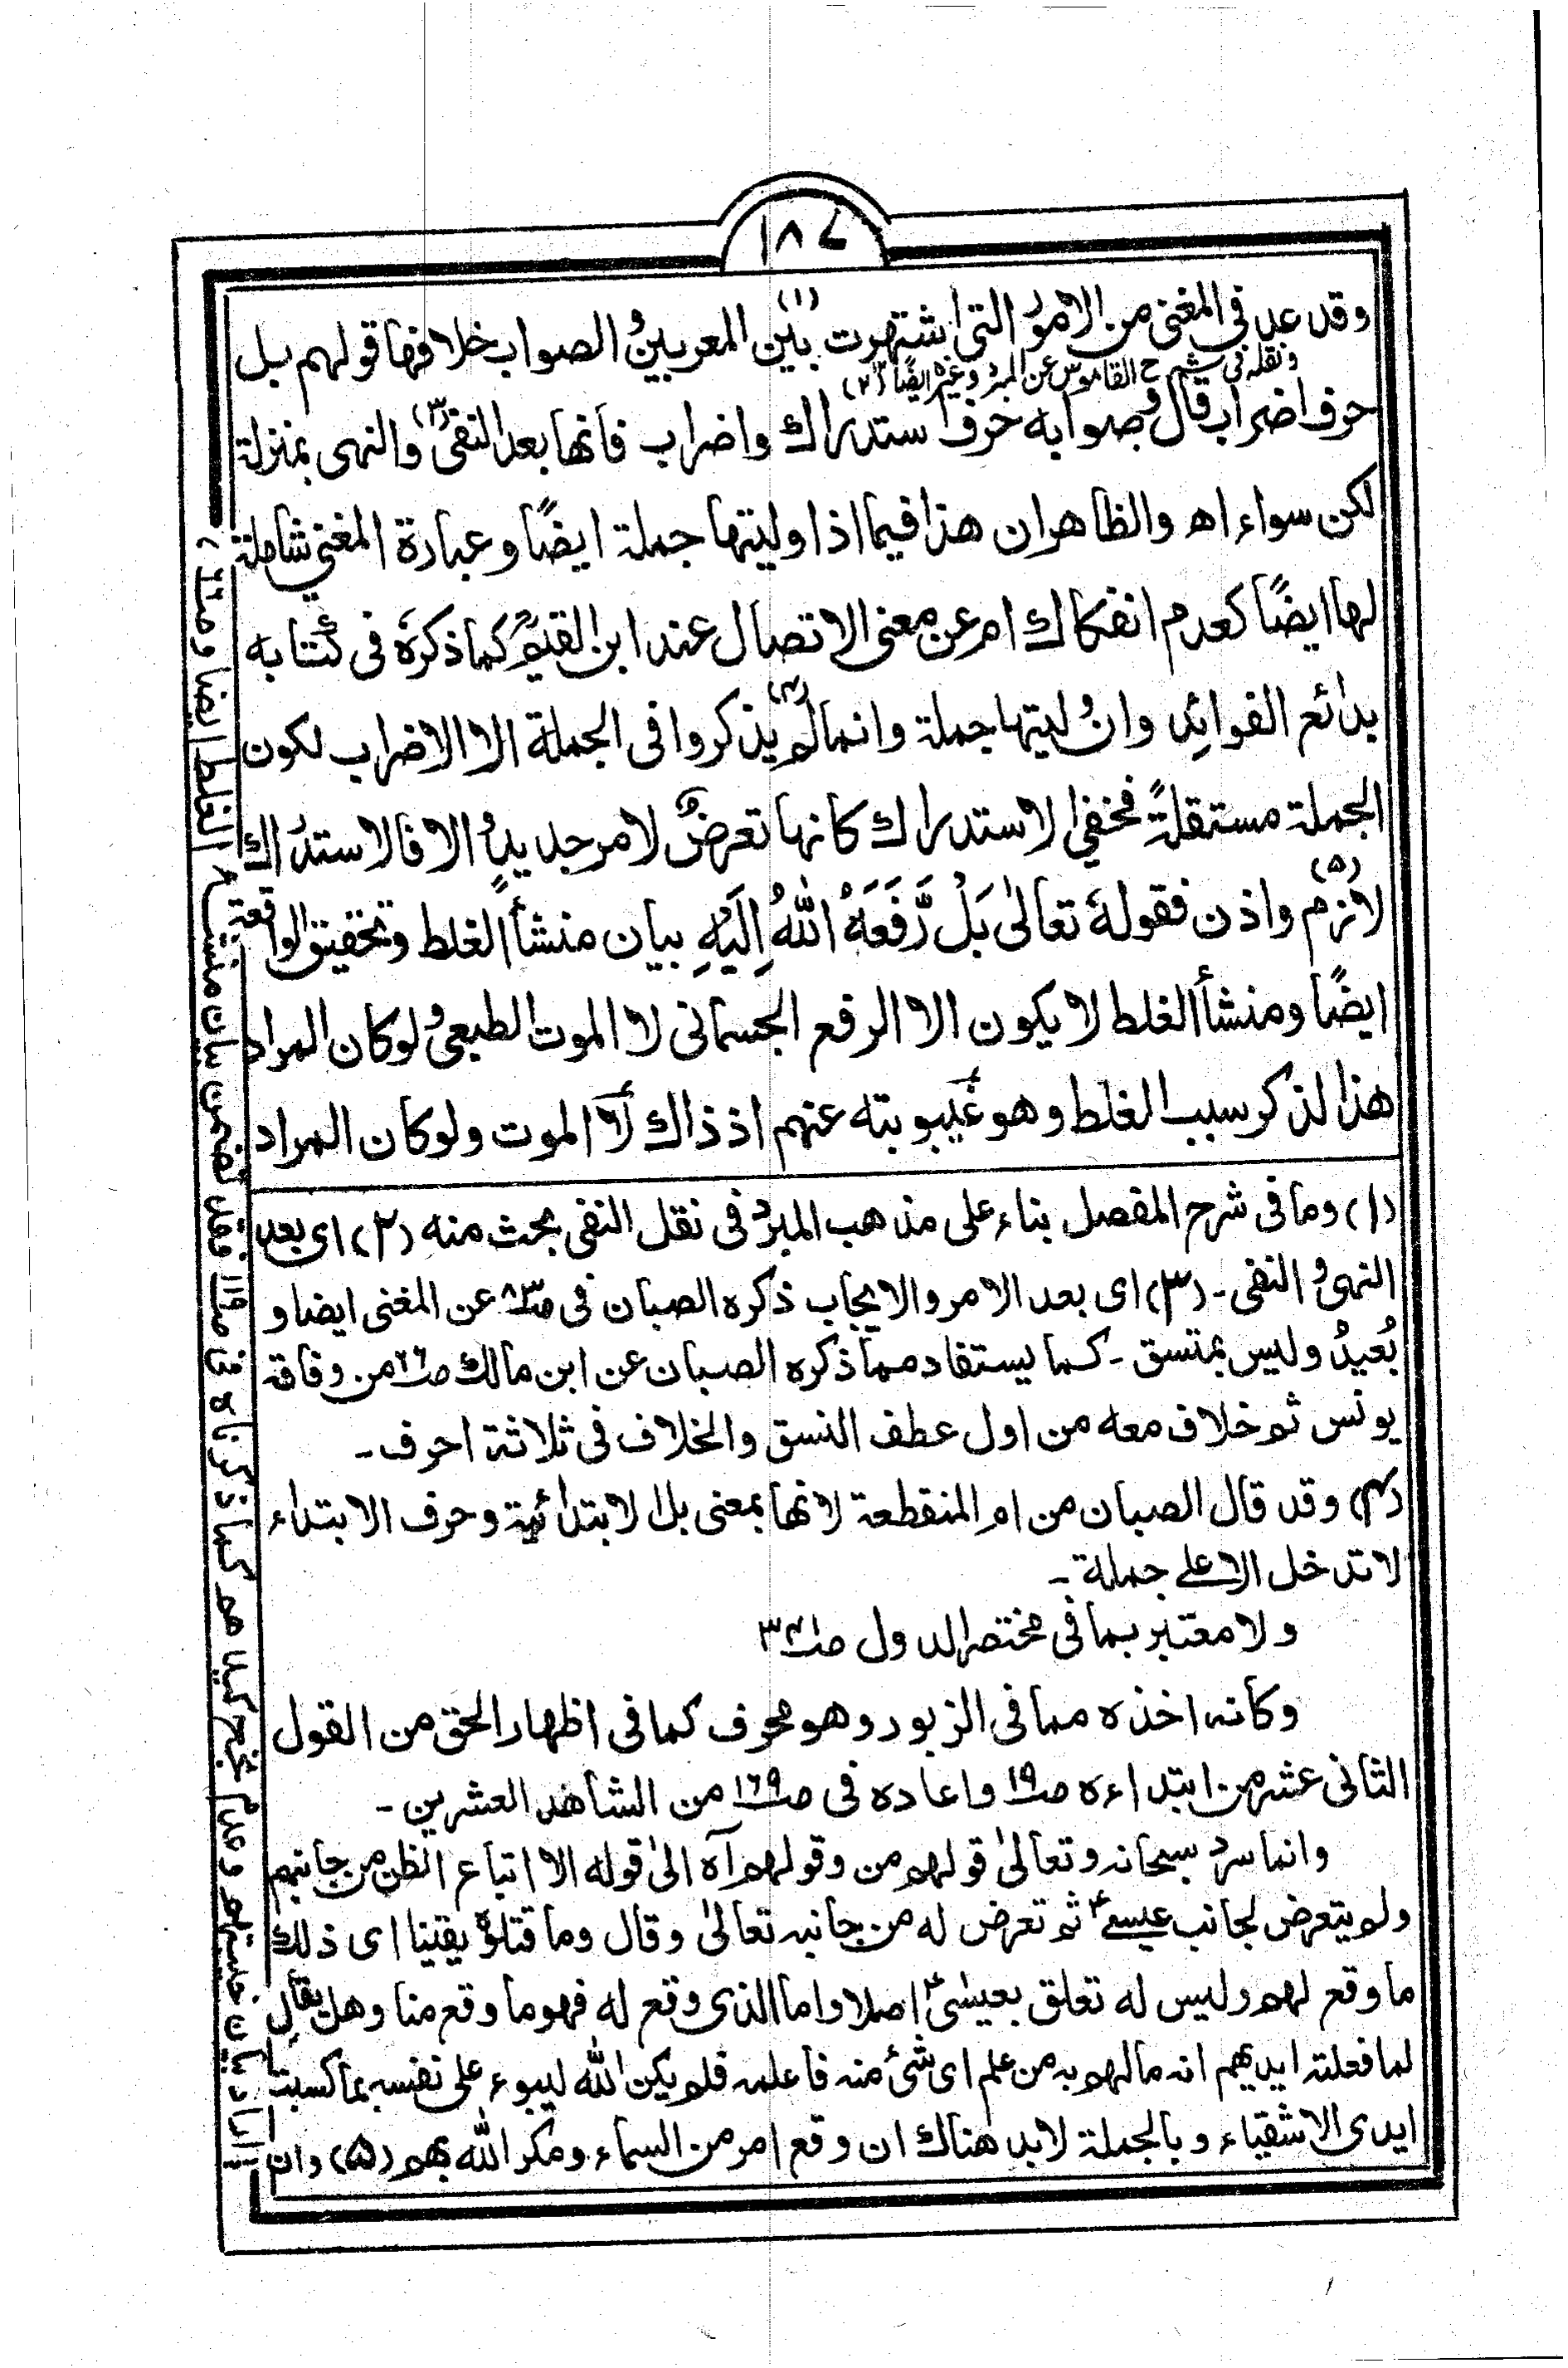 ١٨٧
وقد عد في المغنى من الامور التى اشتهرت (١) بين المعربين و الصواب خلافها قولهم بل
ونقله فى شرح القاموس عن المبرد وغيره ايضًا (٢)
حرف اضراب قال و صوابه حرف استدراك واضراب فانها بعد النفى (٣) والنهى بمنزلة
لكن سواء اه والظاهر ان هذا فيما اذا وليتها جملة ايضًا وعبارة المغني شاملة
لها ايضًا كعدم انفكاك ام عن معنى الاتصال عند ابن القيمؒ كما ذكرهٗ فى كتابه
بدائع الفوائد وان وليتها جملة وانما لم (٤) يذكروا فى الجملة الا الاضراب لكون
الجملة مستقلةً فخفي الاستدراك كانها تعرضٌ لامر جديدٍ و الا فالاستدراك
لازم (٥) واذن فقولهٗ تعالىٰ بَلْ رَّفَعَهُ اللّٰهُ اِلَيْهِ بيان منشأ الغلط وتحقيق الواقعة
ايضًا ومنشأ الغلط لا يكون الا الرفع الجسمانى لا الموت الطبعى و لو كان المراد
هذا لذكر سبب الغلط وهو غَيبوبته عنهم اذ ذاك لا الموت ولو كان المراد
(١) وما فى شرح المفصل بناء على مذهب المبرد فى نقل النفى بحث منه (٢) اى بعد
النهى و النفى ـ (٣) اى بعد الامر والايجاب ذكره الصبان فى ص٨٣ عن المغنى ايضا و
بُعيدُ وليس بمتسق ـ كما يستفاد مما ذكره الصبان عن ابن مالك ص٦٦ من وفاقة
يونس ثم خلاف معه من اول عطف النسق والخلاف فى ثلاثة احرف ـ
(٤) وقد قال الصبان من امِ المنقطعة لانها بمعنى بل الابتدائية وحرف الابتداء
لا تدخل الا على جملة ـ
ولا معتبر بما فى مختصر الدول
وكانه اخذه مما فى الزبور وهو محرف كما فى اظهار الحق من القول
الثانى عشر من ابتداءه ص١٩ واعاده فى ص١٦٩ من الشاهد العشرين ـ
وانما سرد سبحانه وتعالىٰ قولهم من وقولهم آه الىٰ قوله الا اتباع الظن من جانبهم
ولم يتعرض لجانب عيسىؑ ثم تعرض له من جانبه تعالىٰ وقال وما قتلوه يقينا اى ذلك
ما وقع لهم وليس له تعلق بعيسىٰؑ اصلا واما الذى وقع له فهو ما وقع منا وهل يقال
لما فعلته ايديهم انه ما لهم به من علم اى شئ منه فاعلمه فلم يكن اللّٰه ليبوء على نفسه بما كسبت
ايدى الاشقياء وبالجملة لابد هناك ان وقع امر من السماء ومكر اللّٰه بهم (٥) وان
بيان منشأ الغلط ايضا و
فقد تضمن
كما ذكرناه فى ص١١٩